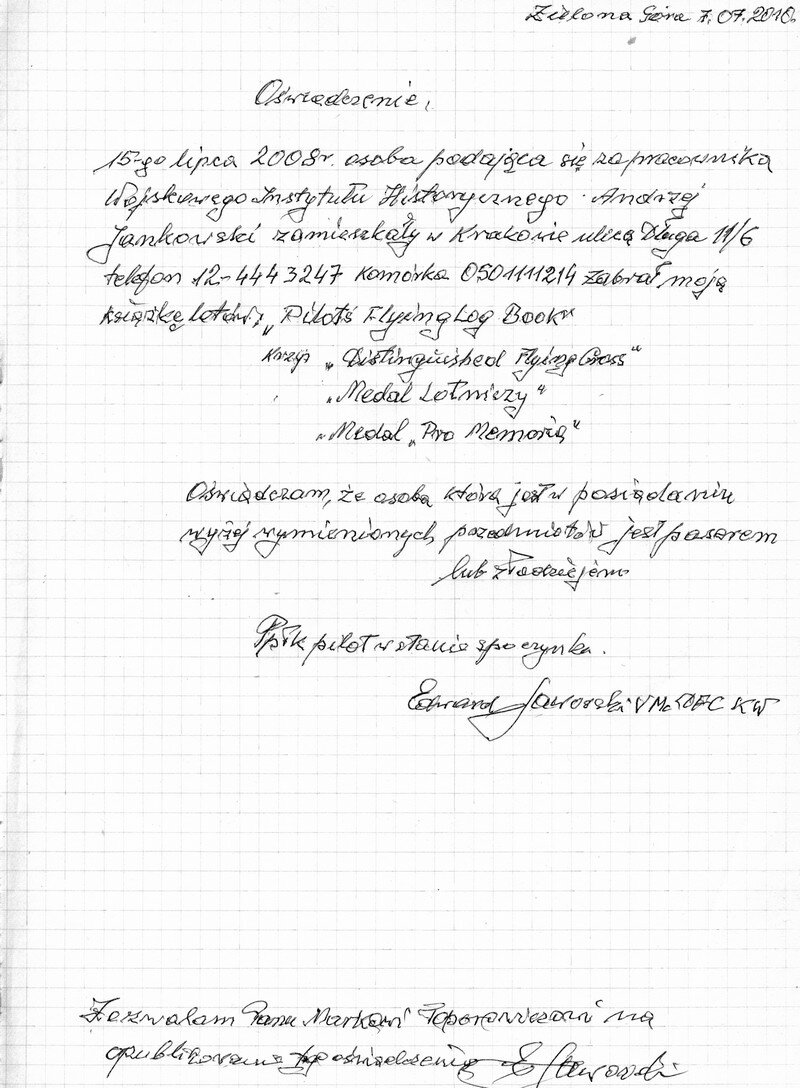 Zielona Góra 7.07.2010.
Oświadczenie.
15-go lipca 2008r. osoba podająca się za pracownika
Wojskowego Instytutu Historycznego Andrzej
Jankowski zamieszkały w Krakowie ulicą Długa 11/6
telefon 12-444 3247 komórka 0501111214 zabrał moją
książkę lotów: „Pilots Flying Log Book"
Krzyż „Distinguished Flying Cross"
„Medal Lotniczy"
„Medal „Pro Memoria"
Oświadczam, że osoba która jest w posiadaniu
wyżej wymienionych przedmiotów jest paserem
lub złodziejem
Ppłk pilot w stanie spoczynku.
Edward Jaworski VM. DFC KW
Zezwalam Panu Markowi na
opublikowanie oświadczenia E Jaworski